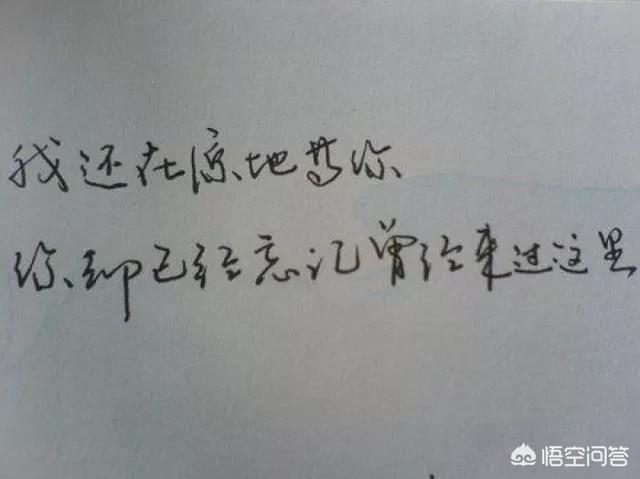 我还在原地等你
你却已经忘记曾经来过这里
悟空问答